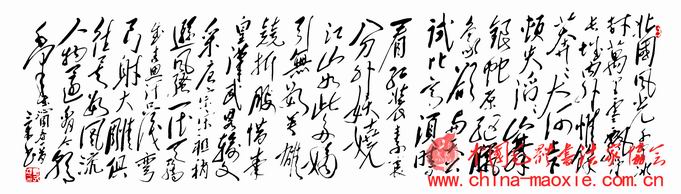 北國風光千里冰
封萬里雪飘望
长城内外惟余
莽莽大河上下
顿失滔滔山舞
银蛇原驰腊
象欲与天公
试比高须晴日
看红装素裹
分外妖娆
江山如此多娇
引無數英雄
竞折腰惜秦
皇漢武略输文
采唐宗宋祖稍
逊風骚一代天骄
成吉思汗只识弯
弓射大雕俱
往矣数風流
人物还看今朝
www.china-maoxie.com.cn